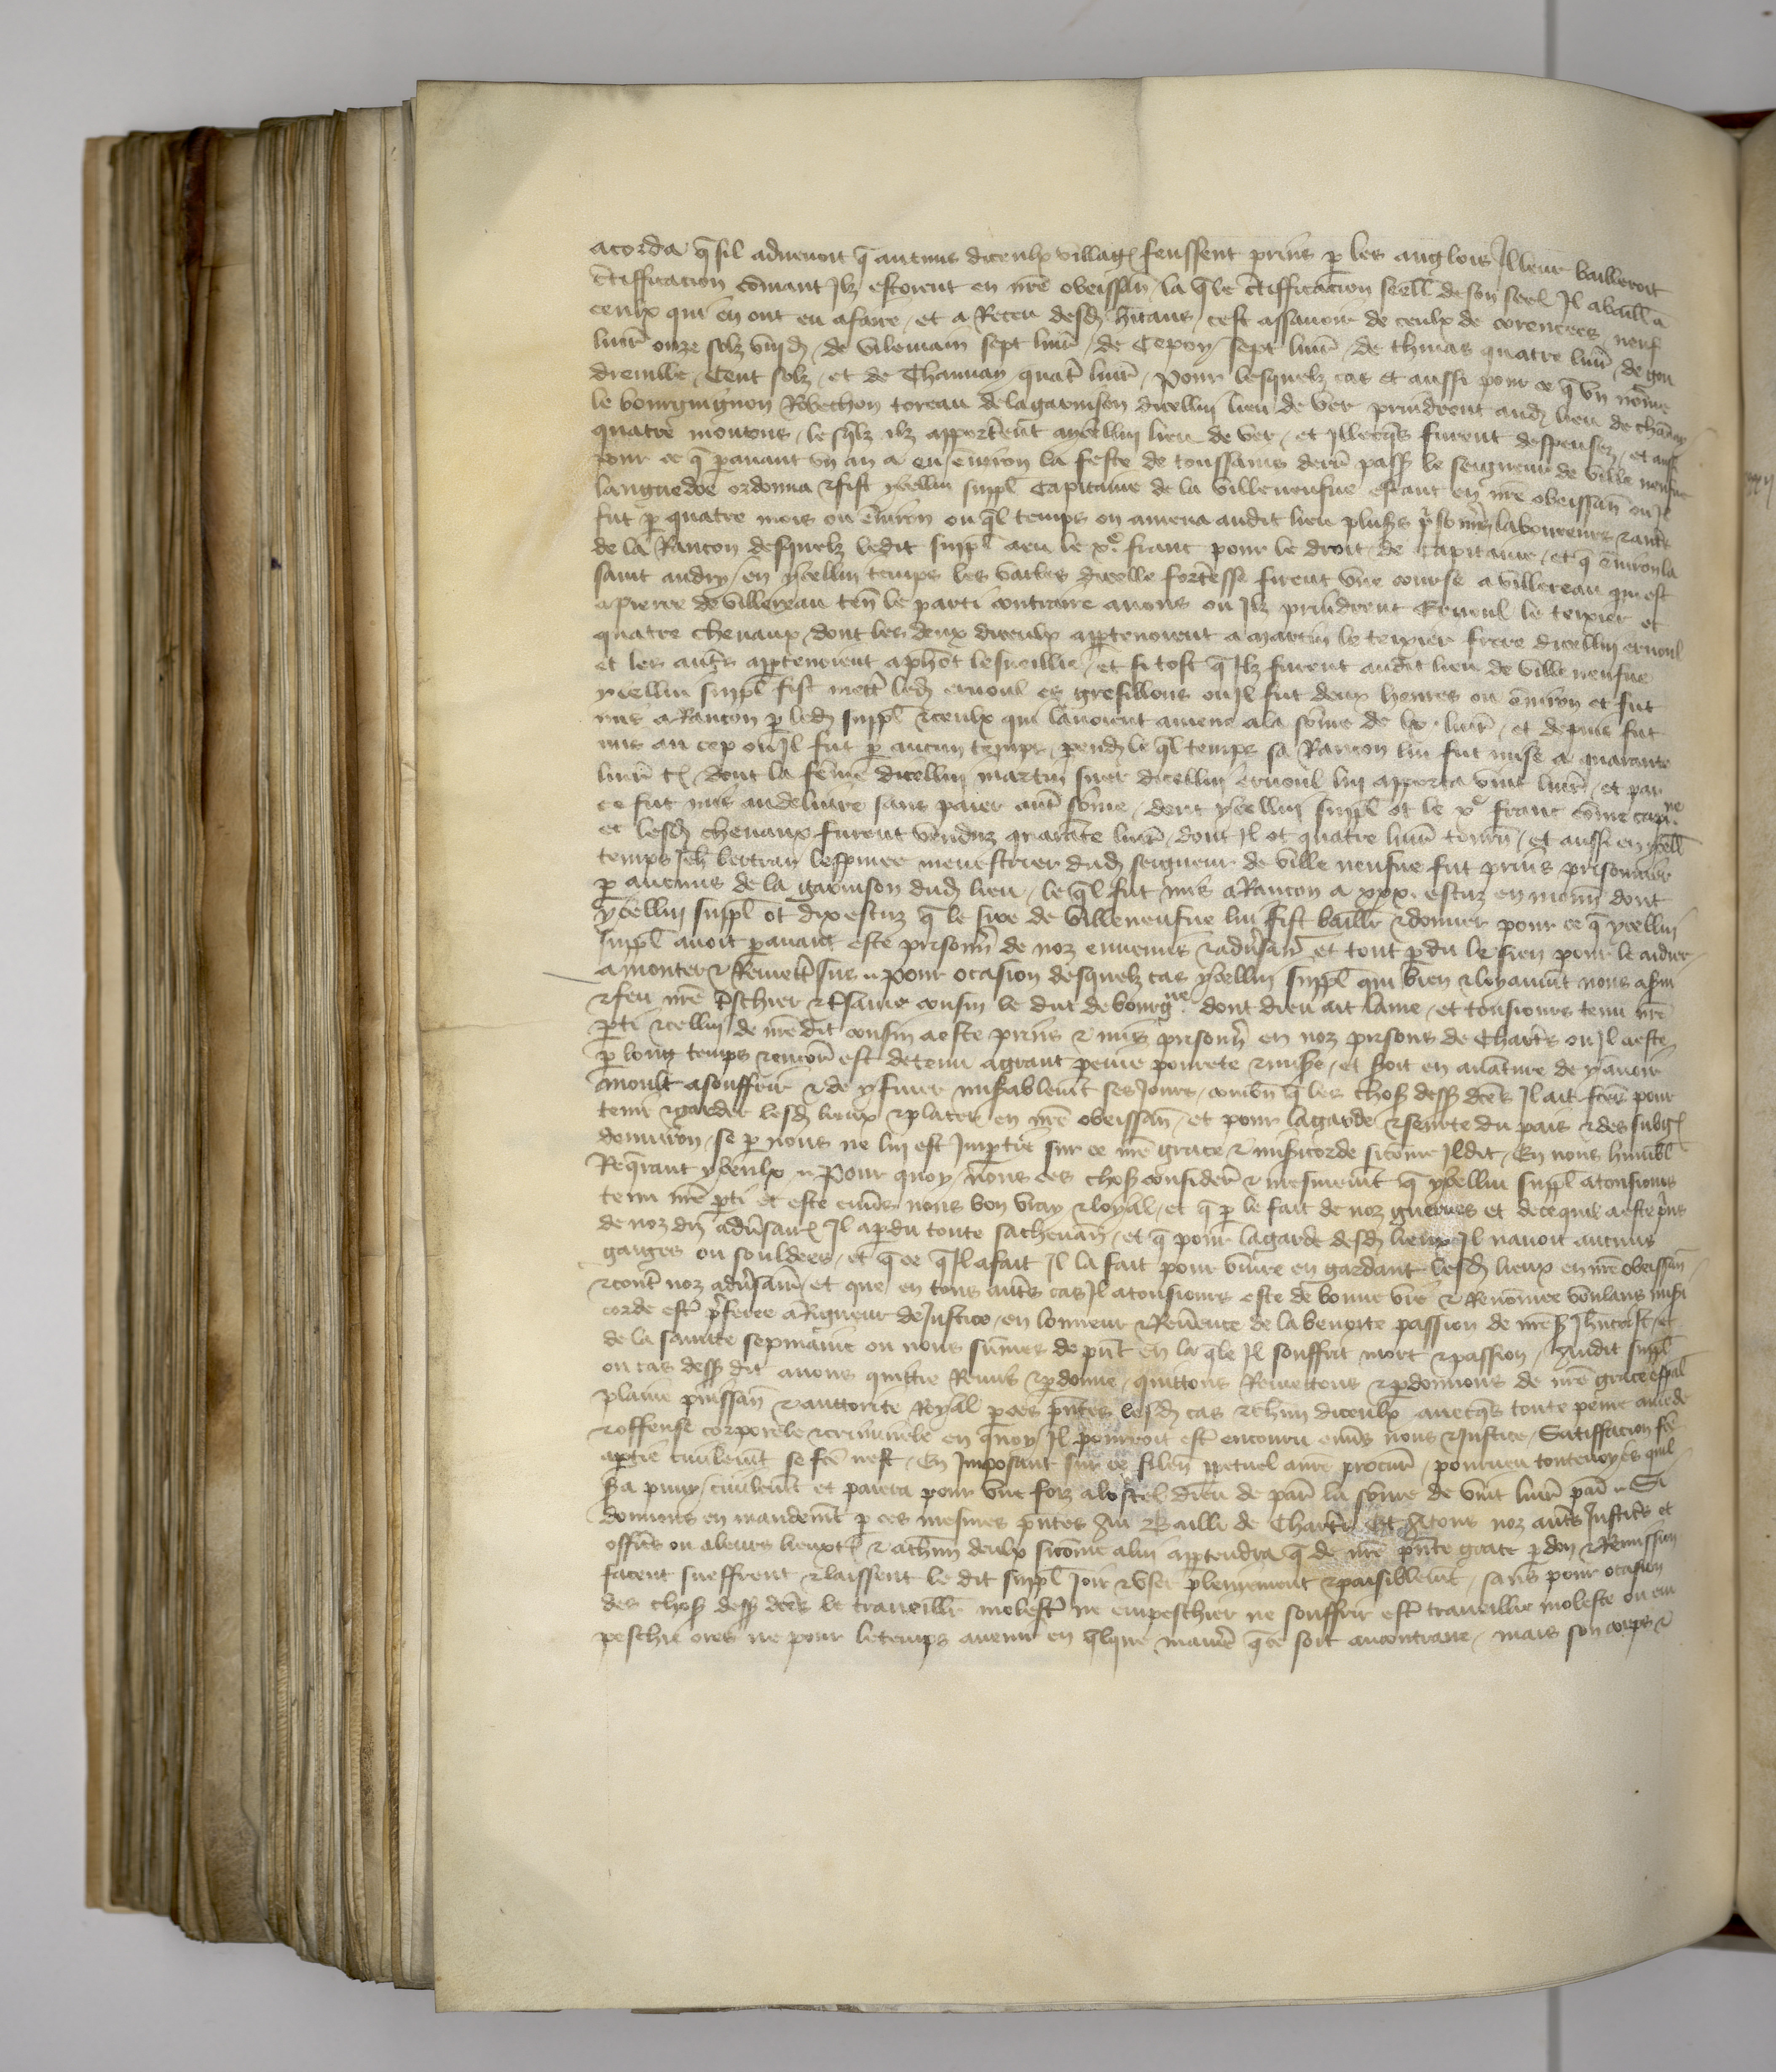 acorda q̃ sil aduenoit q̃ aucuns diceulx villag̃ feussent prins p̱ les anglois Il leur bailleroit
c̃tifficacion cõmant Ilz estoient en nr̃e obeissañ / la q̃le c̃tifficacion seell̃ de son seel Il a baill̃ a
ceulx qui en ont eu afaire / et a Receu desd̃ h̃itans / cest assauoir de ceulx de corencees neuf
liur̃ onze solz viijd̃ / de vilemain sept liur̃ / de Cepoy / sept liur̃ / de thuias quatre liur̃ / de gou
dreuille / Cent solz / et de Thannay quat̃ liur̃ / Pour lesquelz cas et aussi pour ce q̃ vn nõme
le bourguignon Robechon toreau de la garnison dicellui lieu de ver prindrent aud̃ lieu de chãnay
quatre moutons / lesq̃lz ilz apport̃ent a ycellui lieu de ver / et Illecq̃s furent despensez / et aussi
pour ce q̃ p̱auant vn an a eu / enuiron la feste de toussains derr̃ pass̃ le seigneur de ville neufue
languedoc ordonna ⁊ fist ycellui suppl̃ Capitaine de la villeneufue estant en nr̃e obeissañ ou Il
fut p̱ quatre mois ou enuiron ou q̃l temps on amena audit lieu plus̃s p̃so m̃s laboureurs ⁊ aut̃s
de la Rancon desquelz ledit suppl̃ a eu le xe. franc pour le droit de capitaine / et q̃ enuiron la
saint andry / en ycellui temps les varles dicelle fort̃esse firent vne course a villereau qui est
a pierre de villereau ten̄ le parti contraire a nous ou Ilz prindrent Ernoul le texier et
quatre cheuaux / dont les deux diceulx app̱tenoient a martin le texier frere dicellui ernoul
et les aut̃s app̱tenoient a ph̃ot lesueillie / et si tost q̃ Ilz furent audit lieu de ville neufue
ycellui suppl̃ fist mett̃ led̃ ernoul es gresillons ou Il fut deux heures ou enuiron et fut
mis a Rancon p̱ led̃ suppl̃ ⁊ ceulx qui lauoient amene a la sõme de lx. liur̃ / et depuis fut
mis au cep ou Il fut p̱ aucun temps / pend̃ le q̃l temps sa Rancon lui fut mise a quarante
liur̃ t̃ / dont la fẽme dicellui martin suer dicellui ernoul lui apporta vint liur̃ / et par
ce fut mis au deliure sans paier aut̃ sõme / dont ycellui suppl̃ ot le xe franc cõme capne
et lesd̃ cheuaux furent venduz quarante liur̃ / dont Il ot quatre liur̃ tourñ / et aussi en ycell̃
temps Jeh̃ bertran lespinee menestrier dud̃ seigneur de ville neufue fut prins prisonnier
p̱ aucuns de la garnison dud̃ lieu / le q̃l fut mis a Rancon a xxx. escuz en monn̄ dont
ycellui suppl̃ ot dix escuz q̃ le sire de villeneufue lui fist baill̃ ⁊ donner pour ce q̃ ycellui
suppl̃ auoit p̱auant este prisonñ de noz ennemis ⁊ adũsair̃ et tout p̱du le sien pour le aidier
a monter ⁊ Remett̃ sus .. Pour ocasion desquelz cas ycellui suppl̃ qui bien ⁊ loyaumt̃ nous a s̃ui
⁊ feu nr̃e t̃schier ⁊ t̃same cousin le duc de bourgne. dont dieu ait lame / et tousiours tenu nr̃e
p̱ti ⁊ cellui de nr̃edit cousin a este prins ⁊ mis prisonñ en noz prisons de Chart̃s ou Il a este
p̱ long temps ⁊ encor̃ est detenu a grant peine pourete ⁊ mis̃e / et soit en auãture de y auoir
moult a souffrir ⁊ de y finer mis̃ablemt̃ ses Jours / combn̄ q̃ les chos̃ dess̃ dc̃es Il ait fc̃es pour
tenir ⁊ garder lesd̃ lieux ⁊ places en nr̃e obeissañ / et pour la garde ⁊ seurte du pais ⁊ des subg̃
denuiron / se p̱ nous ne lui est Imp̱tie sur ce nr̃e grace ⁊ mis̃icorde sicõme Il dit / En nous humbl̃
Req̃rant yceulx .. Pour quoy / nous ces chos̃ consider̃ ⁊ mesmemt̃ q̃ ycellui suppl̃ a tousiours
tenu nr̃e p̱ti et este enũs nous bon vray ⁊ loyal / et q̃ p̱ le fait de noz guerres et de ce quil a este p̃ns
de noz diz adũsair̃ Il a p̱du toute sa cheuañ / et q̃ pour la garde desd̃ lieux Il nauoit aucuns
gaiges ou souldees / et q̃ ce q̃ Il a fait Il la fait pour viure en gardant lesd̃ lieux en nr̃e obeissañ
⁊ cont̃ noz adũsair̃ / et que en tous aut̃s cas Il a tousiours este de bonne vie ⁊ Renõmee voulans mis̃i
corde est̃ p̃feree a Rigueur de Justice / en lonneur ⁊ Reũence de la benoite passion de nr̃e s̃ Jh̃ucrist / et
de la sainte sepmaine ou nous sũmes de pñt en la q̃le Il souffri mort ⁊ passion / Audit suppl̃
ou cas dess̃ dit auons quittie Remis ⁊ p̱donne / quittons Remettons ⁊ p̱donnons de nr̃e grace esp̃al
plaine puissañ ⁊ auttorite Royal p̱ ces p̃ntes lesd̃ cas ⁊ ch̃un diceulx auecq̃s toute peine amẽde
⁊ offense corporele ⁊ criminele en quoy Il pourroit est̃ encouru enũs nous ⁊ Justice / Satisfacion fc̃e
a p̱tie ciuilemt̃ se fc̃e nest / En Imposant sur ce silen̄ p̱petuel a nr̃e procur̃ / pourueu touteuoyes quil
s̃a puny ciuilemt̃ et paiera pour vne foiz a lostel dieu de par̃ la sõme de vint liur̃ par̃ .. Si
donnons en mandemt̃ p̱ ces mesmes p̃ntes Au Bailli de Chart̃s Et A tous noz aut̃s Justic̃s et
offic̃s ou a leurs lieuxt̃ ⁊ a ch̃un deulx sicõme a lui app̱tendra q̃ de nr̃e p̃nte grace p̱don ⁊ Remission
facent sueffrent ⁊ laissent le dit suppl̃ Joir ⁊ vser plenierement ⁊ paisiblemt̃ / sans pour ocasion
des chos̃ dess̃ dc̃es le traueillr̃ molest̃ ne empeschier ne souffrir est̃ traueillie moleste ou em
peschie ores ne pour le temps auenir en q̃lque manier̃ q̃ ce soit au contraire / mais son corps ⁊